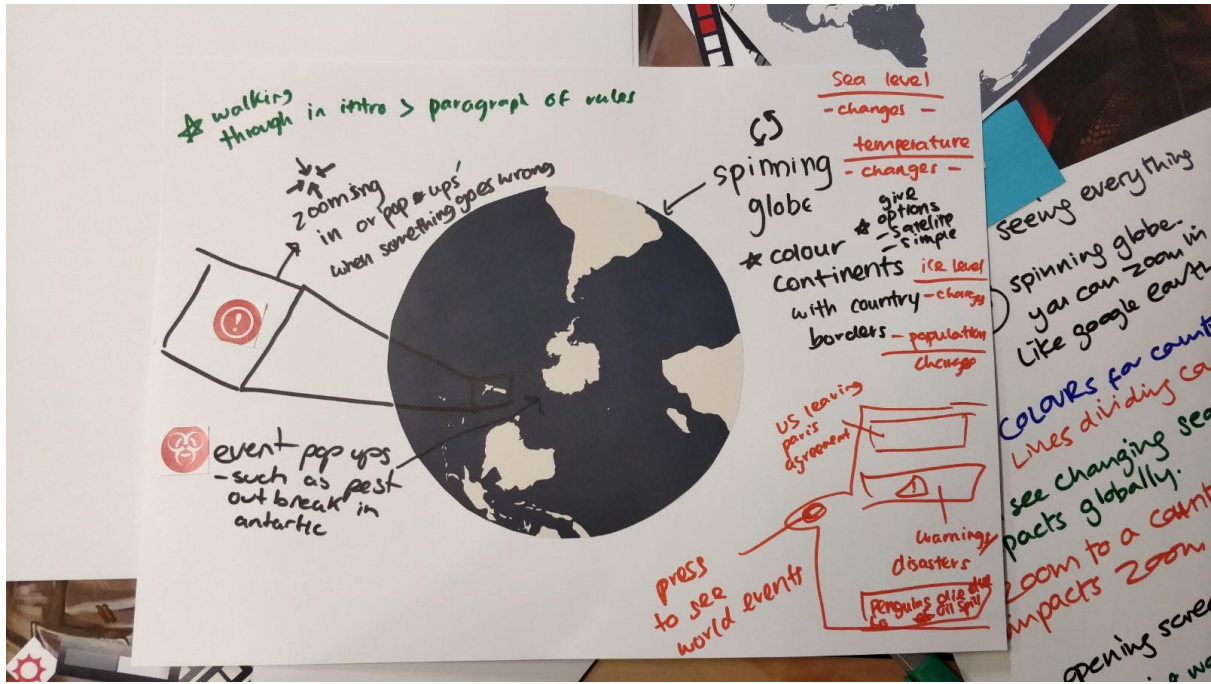 ☆ walking
through in intro > paragraph of rules
zoomisng
in or 'pop ups'
when something goes wrong
!
event pop ups
- such as pest
outbreak in
antartic
spinning
globe
☆ colour
continents
with country
borders
☆ give
options
- satelite
- simple
sea level
- changes -
temperature
- changes -
ice level
- changes
- population
changes
US leaving
paris
agreement
!
warnings
disasters
penguins die due
to oil spill
press
to see
world events
seeing everything
spinning globe.
you can zoom in
like google earth
COLOURS for
Lines dividing
see changing sea
globally.
zoom to a
impacts zoom
opening